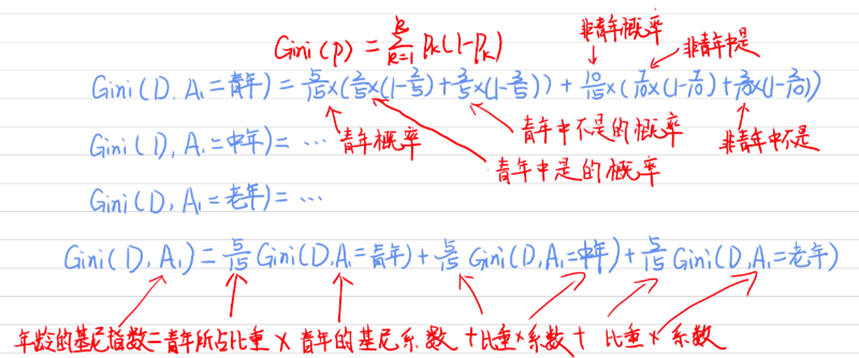 Gini(p) = \sum_{k=1}^{K} p_k(1-p_k)
非青年概率
非青年中是
Gini(D, A₁=青年) = 5/15×(2/5×(1-2/5)+3/5×(1-3/5)) + 10/15×(7/10×(1-7/10)+3/10×(1-3/10))
Gini(D, A₁=中年) = …
青年概率
青年中不是的概率
非青年中不是
青年中是的概率
Gini(D, A₁=老年) = …
Gini(D, A₁) = 5/15 Gini(D, A₁=青年) + 5/15 Gini(D, A₁=中年) + 5/15 Gini(D, A₁=老年)
年龄的基尼指数=青年所占比重 × 青年的基尼系数 + 比重×系数 + 比重×系数